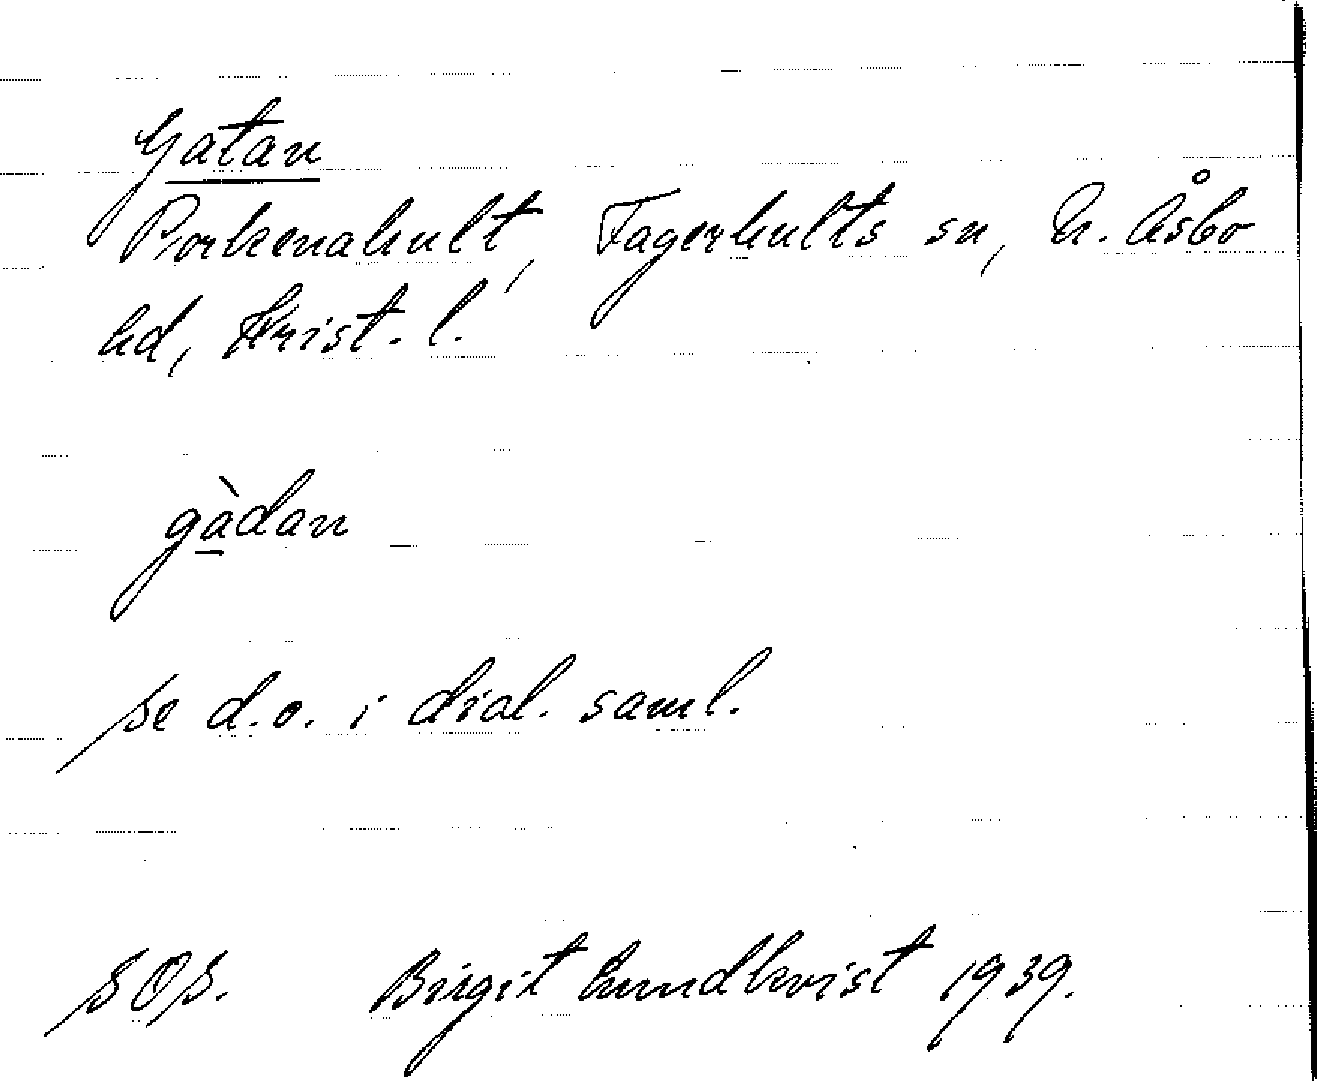 Gatan
Porkenahult, Fagerhults sn, N. Åsbo
hd, Krist. l.
gàdan
se d.o. i dial. saml.
SOS. Birgit Lundkvist 1939.